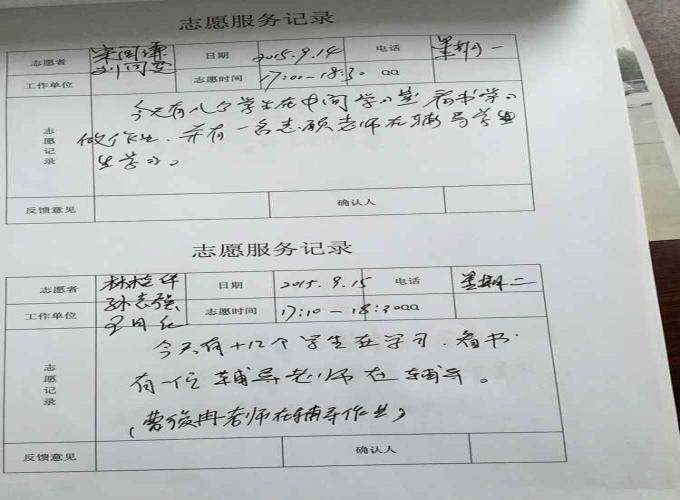 志愿服务记录
志愿者 日期 2015.9.14 电话 星期一
工作单位 志愿时间 17:00-18:30 QQ
志愿记录
今天有几个学生在中间学习室看书学习
做作业.并有一名志愿老师在辅导学
生学习。
反馈意见 确认人
志愿服务记录
志愿者 日期 2015.9.15 电话 星期二
孙志强
工作单位 志愿时间 17:10-18:30QQ
志愿记录
今天有十几个学生在学习.看书.
有一位辅导老师在辅导。
(曹俊冉老师在辅导作业)
反馈意见 确认人